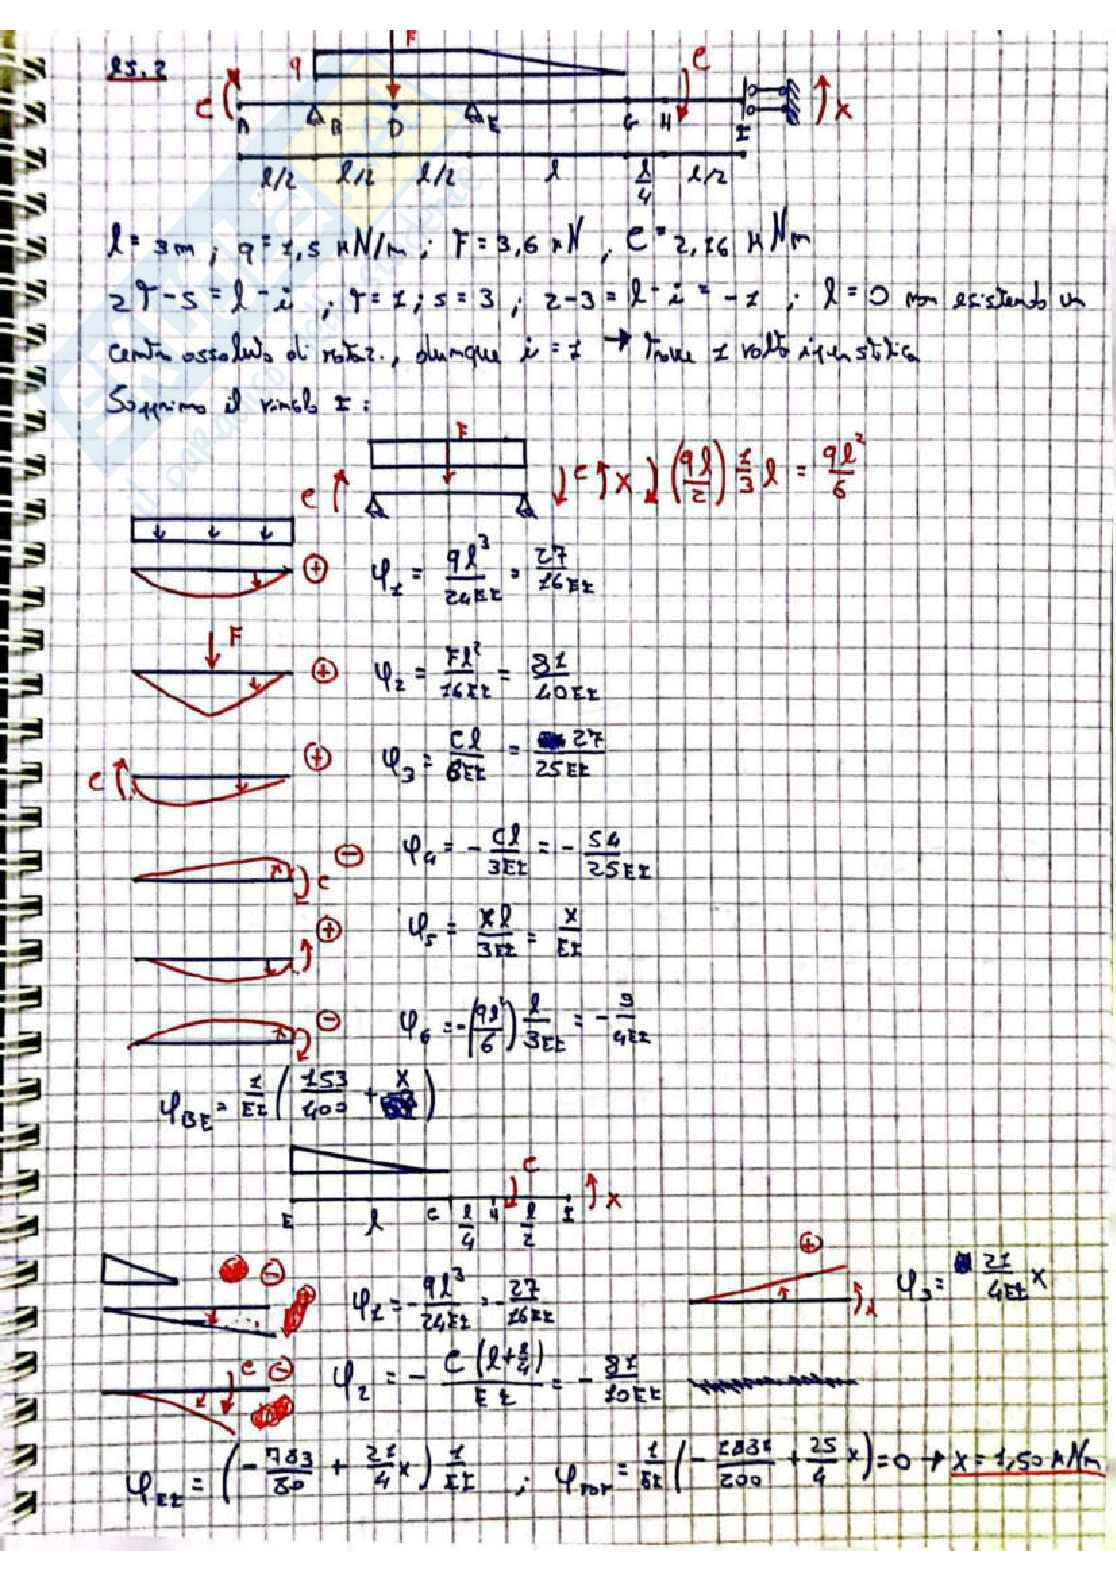 ES.2
F
q
C
C
X
A B D E G H I
l/2 l/2 l/2 l l/4 l/2
l = 3m ; q = 1,5 kN/m ; F = 3,6 kN , C = 2,16 kNm
2T - s = l - i ; T = 1 ; s = 3 ; 2-3 = l - i = -1 ; l = 0 non esistendo un
centro assoluto di rotaz., dunque i = 1 → Trave 1 volta iperstatica
Sopprimo il vincolo I :
F
C C X (ql/2) 1/3 l = ql²/6
⊕ φ1 = ql³/24EI = 27/16EI
F
⊕ φ2 = Fl²/16EI = 81/40EI
C ⊕ φ3 = Cl/6EI = 27/25EI
⊖ C φ4 = - Cl/3EI = - 54/25EI
⊕ φ5 = Xl/3EI = X/EI
⊖ φ6 = -(ql²/6) l/3EI = - 9/4EI
φBE = 1/EI ( 153/400 + X )
C X
E l G l/4 H l/2 I
⊖ φ1 = - ql³/24EI = - 27/16EI ⊕ φ3 = 21/4EI X
C ⊖ φ2 = - C(l+l/4)/EI = - 81/10EI
φEI = ( - 783/80 + 21/4 X ) 1/EI ; φTOT = 1/EI ( - 1881/200 + 25/4 X ) = 0 → X = 1,50 kNm